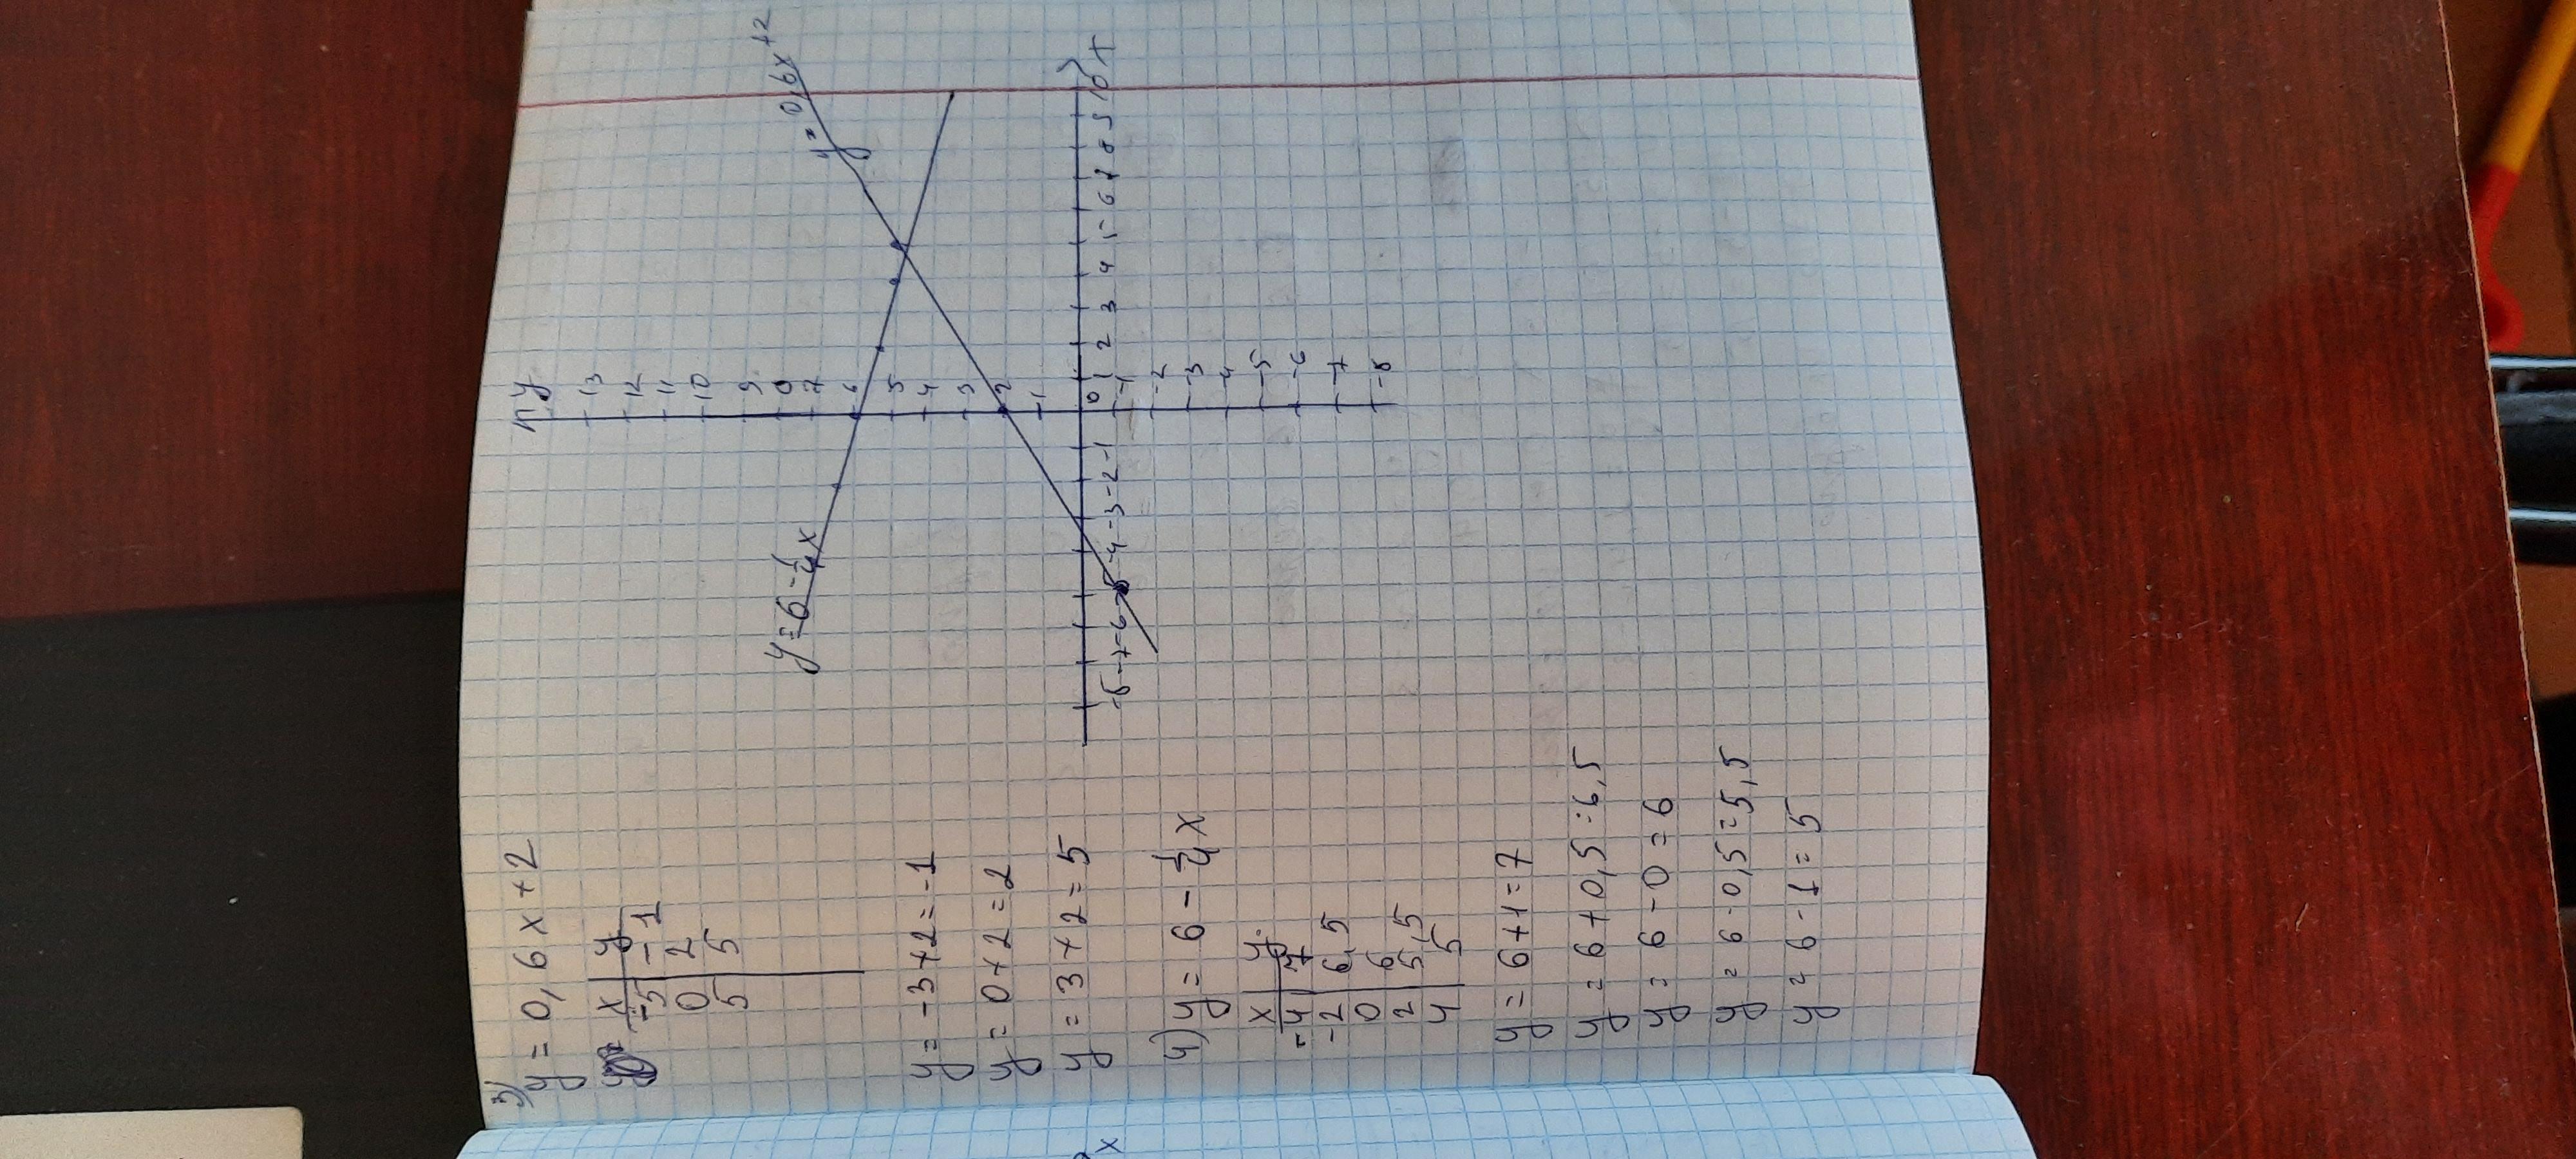 3)
y = 0,6x+2
x y
-5 -1
0 2
5 5
y = -3+2=-1
y = 0+2=2
y = 3+2=5
4) y = 6 - 1/4 x
x y
-4 7
-2 6,5
0 6
2 5,5
4 5
y = 6+1=7
y = 6+0,5=6,5
y = 6-0=6
y = 6-0,5=5,5
y = 6-1=5
y
13
12
11
10
9
8
7
6
5
4
3
2
1
0
-1
-2
-3
-4
-5
-6
-7
-8
y=6-1/4x
y=0,6x+2
-8 -7 -6 -5 -4 -3 -2 -1 1 2 3 4 5 6 7 8 9 10 x
x